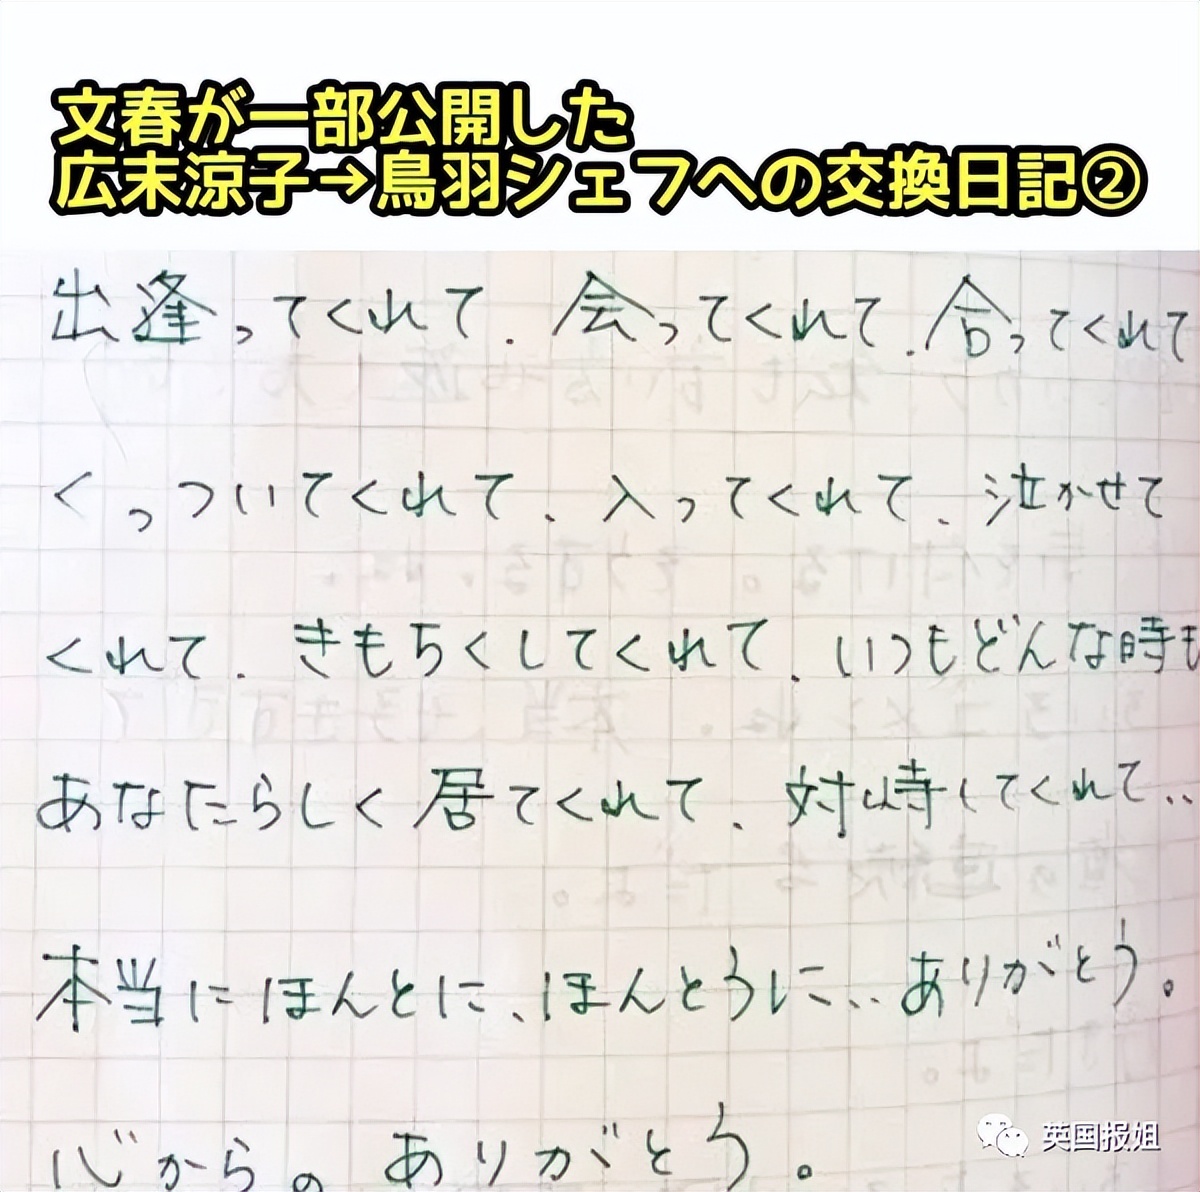 文春が一部公開した
広末涼子→鳥羽シェフへの交換日記②
出逢ってくれて、会ってくれて、合ってくれて
くっついてくれて、入ってくれて、泣かせて
くれて、きもちくしてくれて、いつもどんな時も
あなたらしく居てくれて、対峙してくれて‥
本当にほんとに、ほんとうに‥ありがとう。
心から。ありがとう。
英国报姐